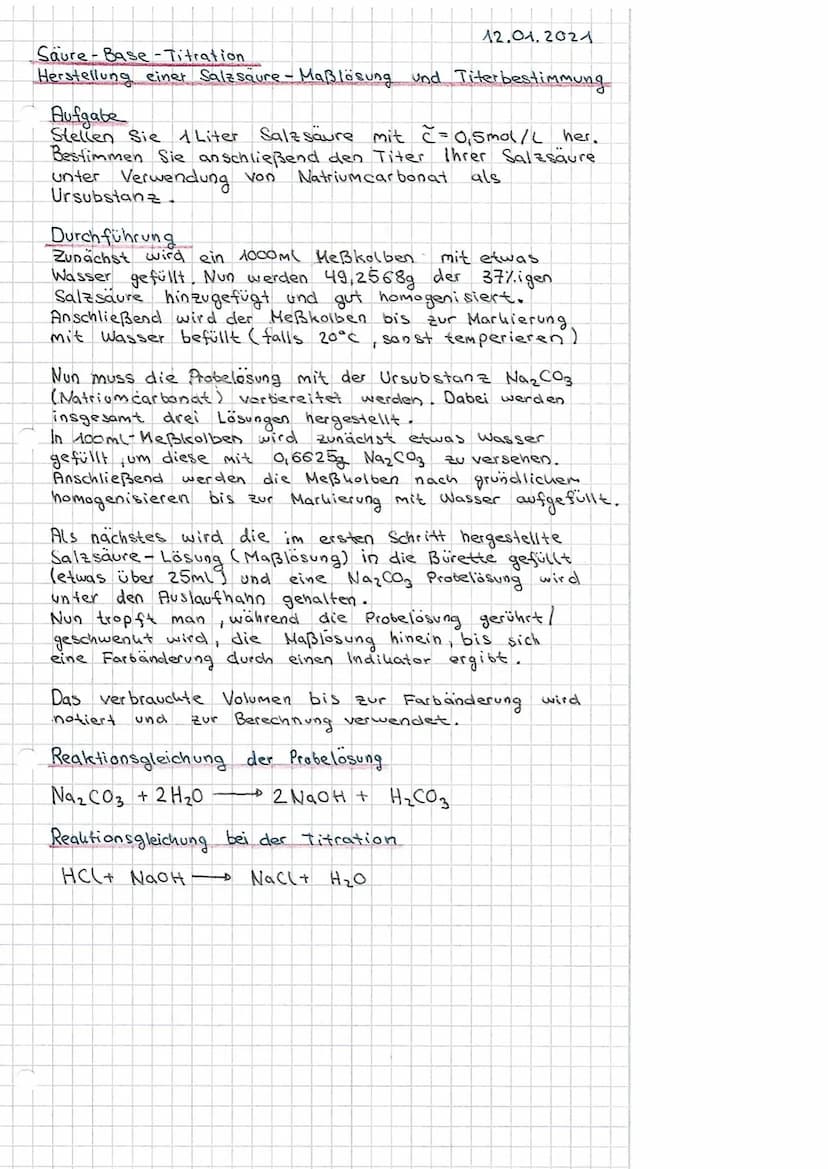 12.01.2021
Säure-Base-Titration
Herstellung einer Salzsäure-Maßlösung und Titerbestimmung
Aufgabe
Stellen Sie 1 Liter Salzsäure mit c̃ = 0,5mol/L her.
Bestimmen Sie anschließend den Titer Ihrer Salzsäure
unter Verwendung von Natriumcarbonat als
Ursubstanz.
Durchführung
Zunächst wird ein 1000ml Meßkolben mit etwas
Wasser gefüllt. Nun werden 49,2568g der 37%igen
Salzsäure hinzugefügt und gut homogenisiert.
Anschließend wird der Meßkolben bis zur Markierung
mit Wasser befüllt (falls 20°C, sonst temperieren)
Nun muss die Probelösung mit der Ursubstanz Na₂CO₃
(Natriumcarbonat) vorbereitet werden. Dabei werden
insgesamt drei Lösungen hergestellt.
In 100ml-Meßkolben wird zunächst etwas Wasser
gefüllt, um diese mit 0,6625g Na₂CO₃ zu versehen.
Anschließend werden die Meßkolben nach gründlichem
homogenisieren bis zur Markierung mit Wasser aufgefüllt.
Als nächstes wird die im ersten Schritt hergestellte
Salzsäure-Lösung (Maßlösung) in die Bürette gefüllt
(etwas über 25ml) und eine Na₂CO₃ Probelösung wird
unter den Auslaufhahn gehalten.
Nun tropft man, während die Probelösung gerührt/
geschwenkt wird, die Maßlösung hinein, bis sich
eine Farbänderung durch einen Indikator ergibt.
Das verbrauchte Volumen bis zur Farbänderung wird
notiert und zur Berechnung verwendet.
Reaktionsgleichung der Probelösung
Na₂CO₃ + 2H₂O ⟶ 2NaOH + H₂CO₃
Reaktionsgleichung bei der Titration
HCl + NaOH ⟶ NaCl + H₂O